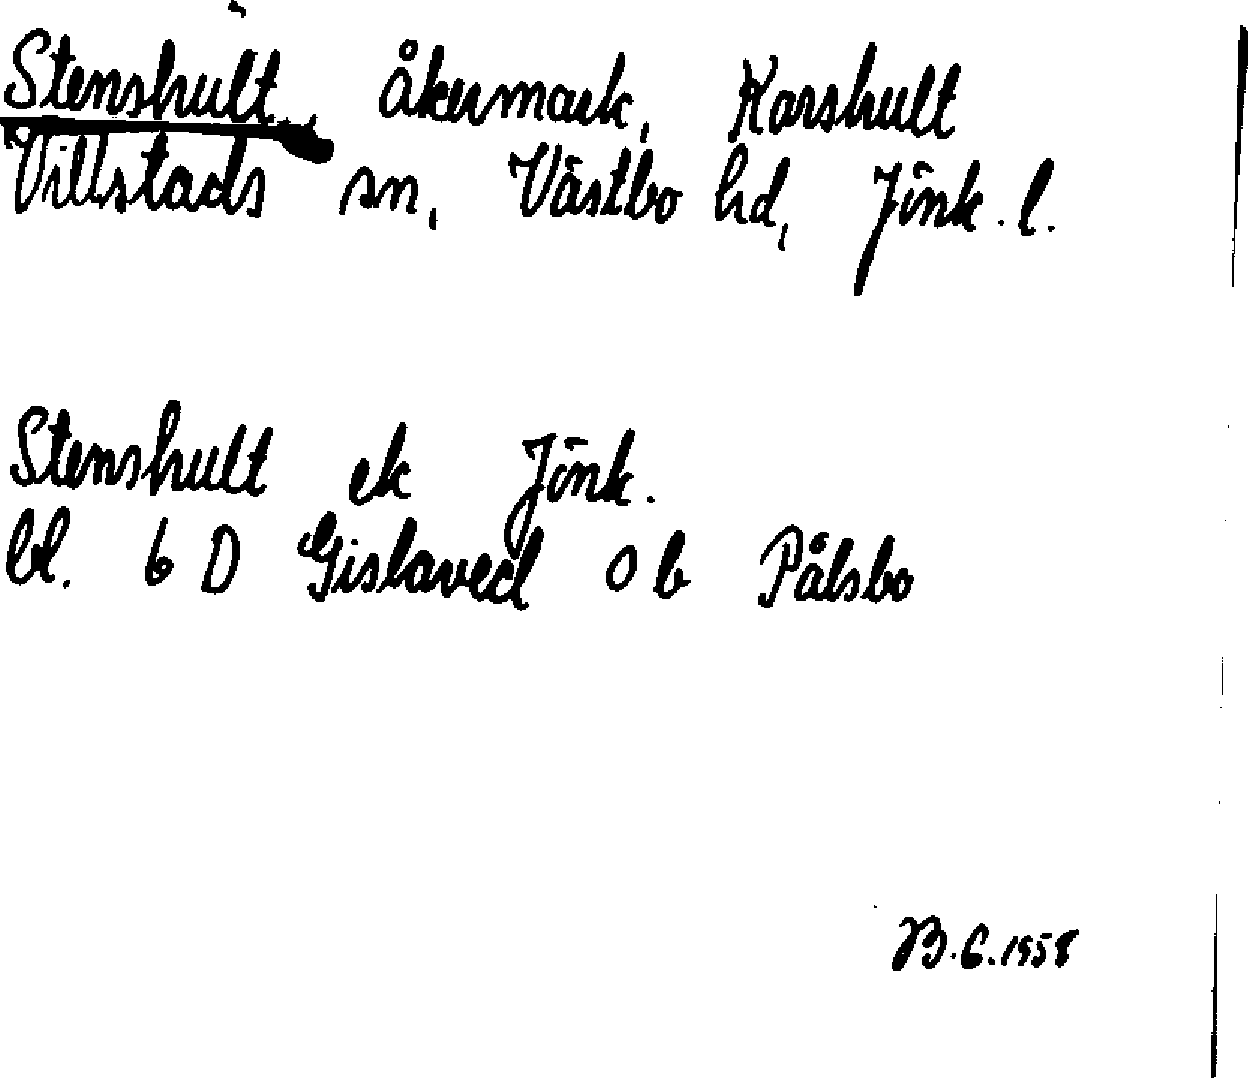 Stenshult, åkermark, Karshult
Villstads sn, Västbo hd, Jönk. l.
Stenshult ek Jönk.
bl. 6 D Gislaved 0 b Pålsbo
B.G.1958